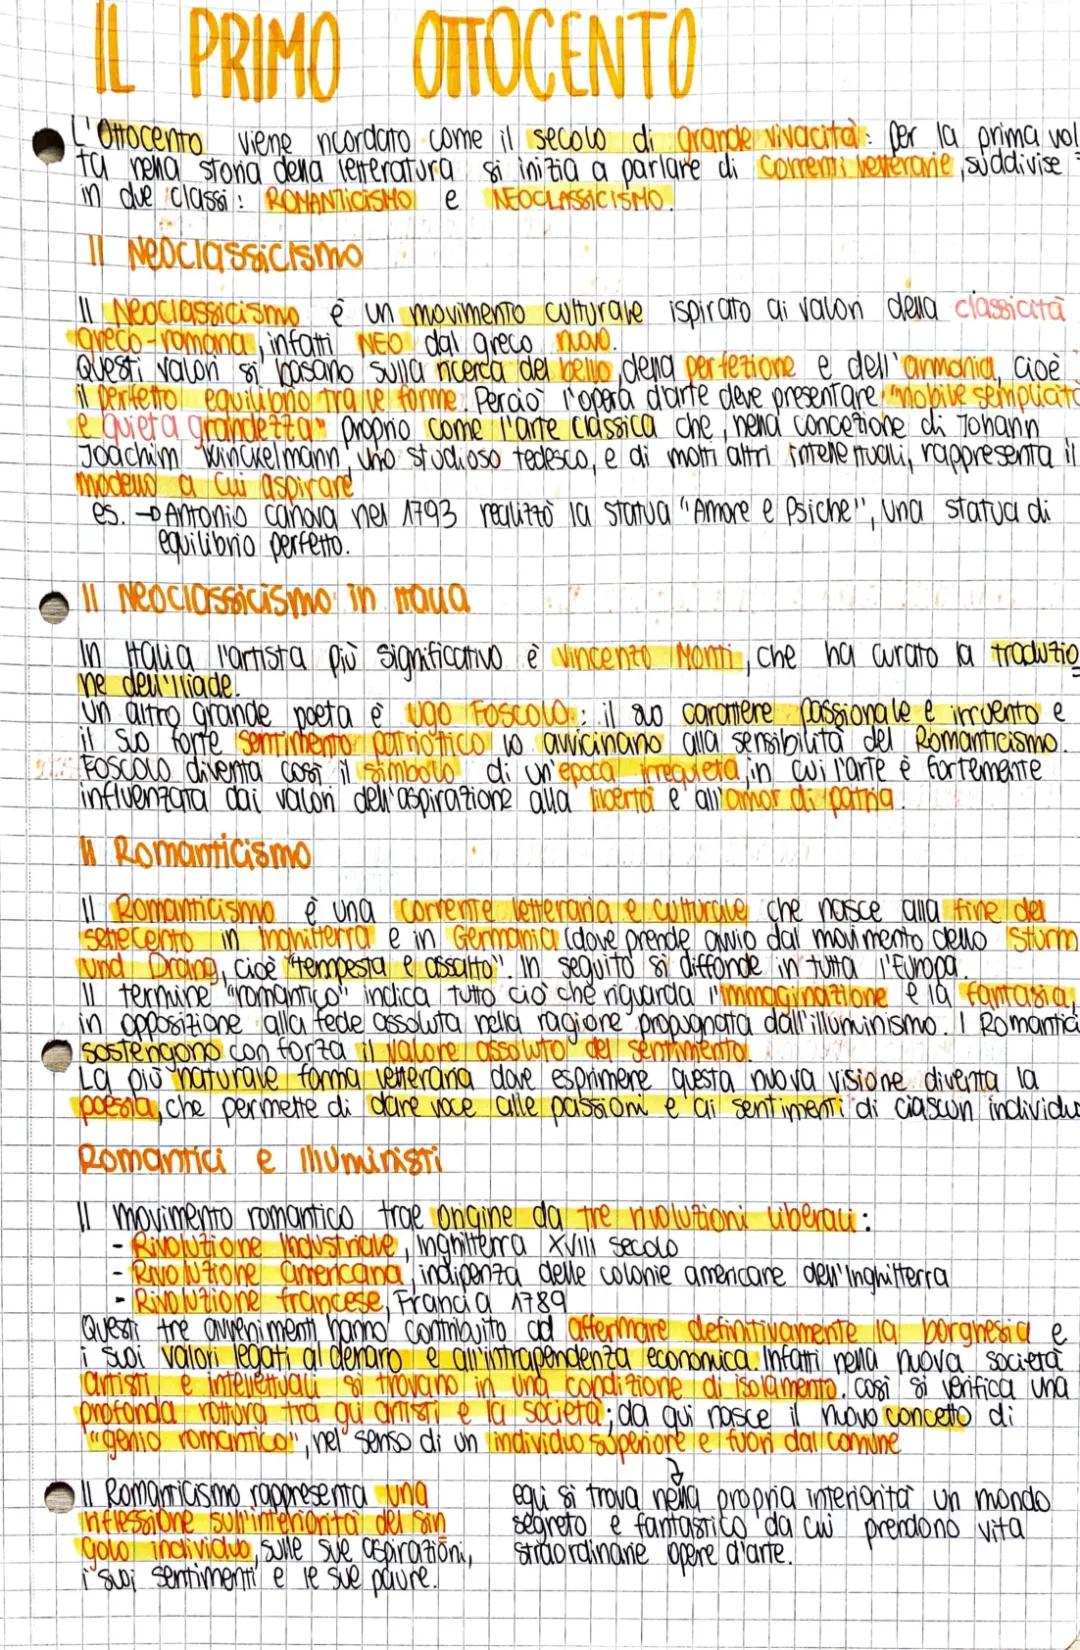 IL PRIMO OTTOCENTO
L'Ottocento viene ricordato come il secolo di grande vivacità: per la prima vol
ta nella storia della letteratura si inizia a parlare di correnti letterarie, suddivise
in due classi: ROMANTICISMO e NEOCLASSICISMO.
Il Neoclassicismo
Il Neoclassicismo è un movimento culturale ispirato ai valori della classicità
greco-romana, infatti NEO dal greco nuovo.
Questi valori si basano sulla ricerca del bello, della perfezione e dell'armonia, cioè
il perfetto equilibrio tra le forme. Perciò l'opera d'arte deve presentare "nobile semplicità
e quieta grandezza" proprio come l'arte classica che, nella concezione di Johann
Joachim Winckelmann, uno studioso tedesco, e di molti altri intellettuali, rappresenta il
modello a cui aspirare
es. → Antonio Canova nel 1793 realizzò la statua "Amore e Psiche", una statua di
equilibrio perfetto.
Il Neoclassicismo in Italia
In Italia l'artista più significativo è Vincenzo Monti, che ha curato la traduzio
ne dell'Iliade.
Un altro grande poeta è Ugo Foscolo: il suo carattere passionale e irruento e
il suo forte sentimento patriottico lo avvicinano alla sensibilità del Romanticismo.
Foscolo diventa così il simbolo di un'epoca irrequieta, in cui l'arte è fortemente
influenzata dai valori dell'aspirazione alla libertà e all'amor di patria.
Il Romanticismo
Il Romanticismo è una corrente letteraria e culturale che nasce alla fine del
settecento in Inghilterra e in Germania (dove prende avvio dal movimento dello Sturm
und Drang, cioè "tempesta e assalto". In seguito si diffonde in tutta l'Europa.
Il termine "romantico" indica tutto ciò che riguarda l'immaginazione e la fantasia,
in opposizione alla fede assoluta nella ragione propugnata dall'illuminismo. I Romantici
sostengono con forza il valore assoluto del sentimento.
La più naturale forma letteraria dove esprimere questa nuova visione diventa la
poesia, che permette di dare voce alle passioni e ai sentimenti di ciascun individuo
Romantici e Illuministi
Il movimento romantico trae origine da tre rivoluzioni liberali:
- Rivoluzione Industriale, Inghilterra XVIII secolo
- Rivoluzione americana, indipenza delle colonie americane dell'Inghilterra
- Rivoluzione francese, Francia 1789
Questi tre avvenimenti hanno contribuito ad affermare definitivamente la borghesia e
i suoi valori legati al denaro e all'intrapendenza economica. Infatti nella nuova società
artisti e intellettuali si trovano in una condizione di isolamento. Così si verifica una
profonda rottura tra gli artisti e la società; da qui nasce il nuovo concetto di
"genio romantico", nel senso di un individuo superiore e fuori dal comune
↓
Il Romanticismo rappresenta una
inflessione sull'interiorità del sin
golo individuo, sulle sue aspirazioni,
i suoi sentimenti e le sue paure.
egli si trova nella propria interiorità un mondo
segreto e fantastico da cui prendono vita
straordinarie opere d'arte.